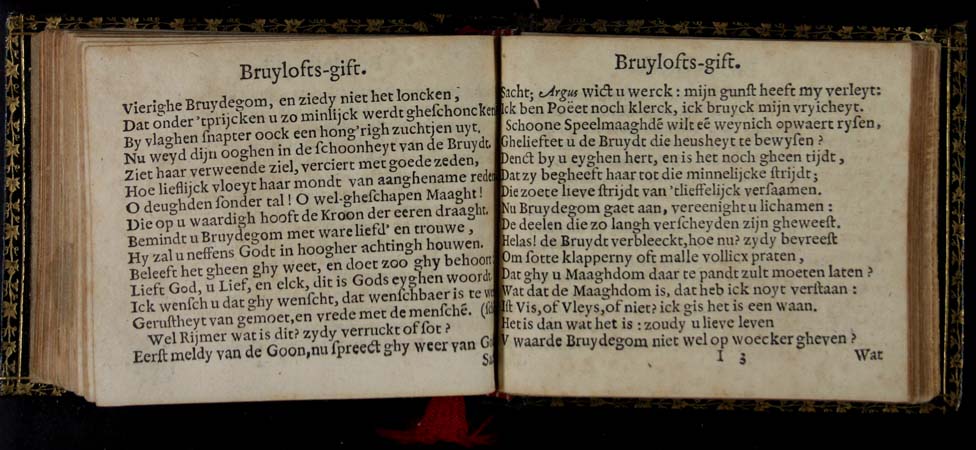 Bruylofts-gift.
Vierighe Bruydegom, en ziedy niet het loncken,
Dat onder 'tprijcken u zo minlijck werdt gheschoncken
By vlaghen snapter oock een hong'righ zuchtjen uyt,
Nu weyd dijn ooghen in de schoonheyt van de Bruydt.
Ziet haar verweende ziel, verciert met goede zeden,
Hoe lieflijck vloeyt haar mondt van aanghename reden
O deughden sonder tal! O wel-gheschapen Maaght!
Die op u waardigh hooft de Kroon der eeren draaght.
Bemindt u Bruydegom met ware liefd' en trouwe,
Hy zal u neffens Godt in hoogher achtingh houwen.
Beleeft het gheen ghy weet, en doet zoo ghy behoort
Lieft God, u Lief, en elck, dit is Gods eyghen woordt
Ick wensch u dat ghy wenscht, dat wenschbaer is te
Gerustheyt van gemoet, en vrede met de menschē.
Wel Rijmer wat is dit? zydy verruckt of sot?
Eerst meldy van de Goon, nu spreect ghy weer van
Bruylofts-gift.
Sacht; Argus wict u werck: mijn gunst heeft my verleyt:
Ick ben Poëet noch klerck, ick bruyck mijn vryicheyt.
Schoone Speelmaaghdē wilt eē weynich opwaert rysen,
Ghelieftet u de Bruydt die heusheyt te bewysen?
Denct by u eyghen hert, en is het noch gheen tijdt,
Dat zy begheeft haar tot die minnelijcke strijdt;
Die zoete lieve strijdt van 'tlieffelijck versaamen.
Nu Bruydegom gaet aan, vereenight u lichamen:
De deelen die zo langh verscheyden zijn gheweest.
Helas! de Bruydt verbleeckt, hoe nu? zydy bevreest
Om sotte klapperny oft malle vollicx praten,
Dat ghy u Maaghdom daar te pandt zult moeten laten?
Wat dat de Maaghdom is, dat heb ick noyt verstaan:
Ist Vis, of Vleys, of niet? ick gis het is een waan.
Het is dan wat het is: zoudy u lieve leven
V waarde Bruydegom niet wel op woecker gheven?
I 3 Wat